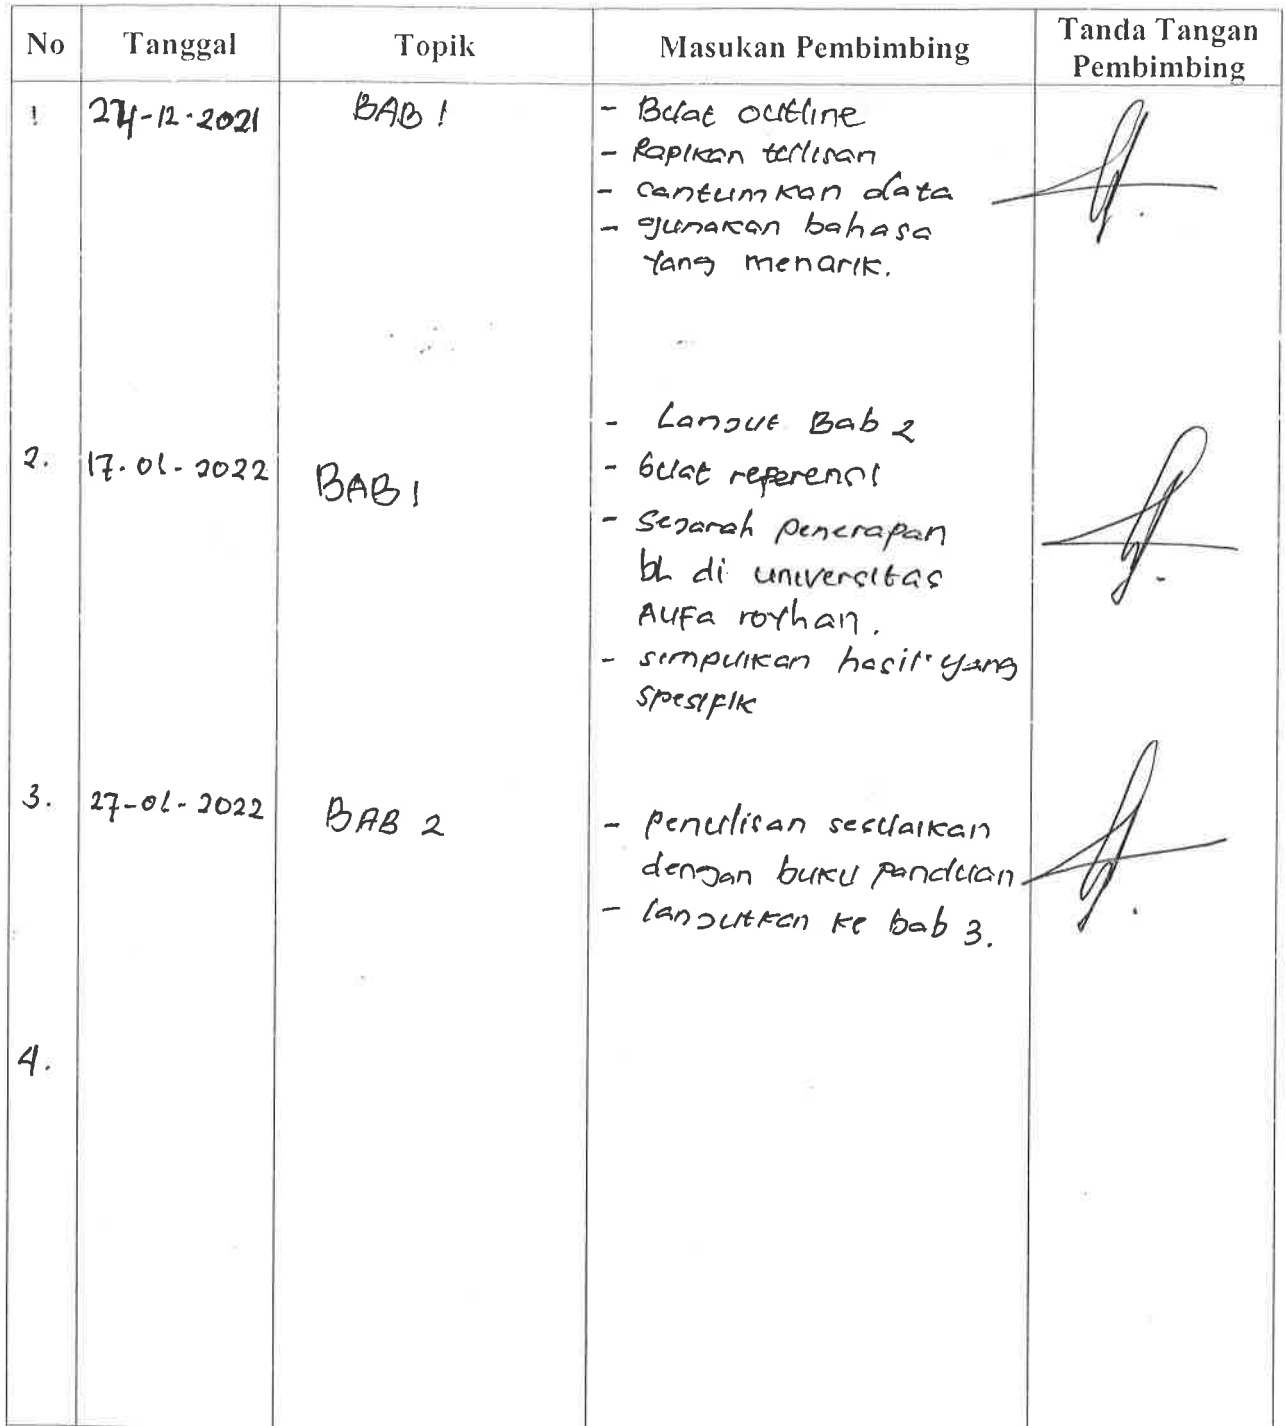 No Tanggal Topik Masukan Pembimbing Tanda Tangan Pembimbing
1 24-12-2021 BAB 1 - Buat outline
- Rapikan tulisan
- cantumkan data
- gunakan bahasa
yang menarik.
- Lanjut Bab 2
2. 17-01-2022 BAB 1 - buat referensi
- Sejarah penerapan
bL di universitas
AUFa royhan.
- simpulkan hasil yang
spesifik
3. 27-01-2022 BAB 2 - penulisan sesuaikan
dengan buku panduan
- lanjutkan ke bab 3.
4.